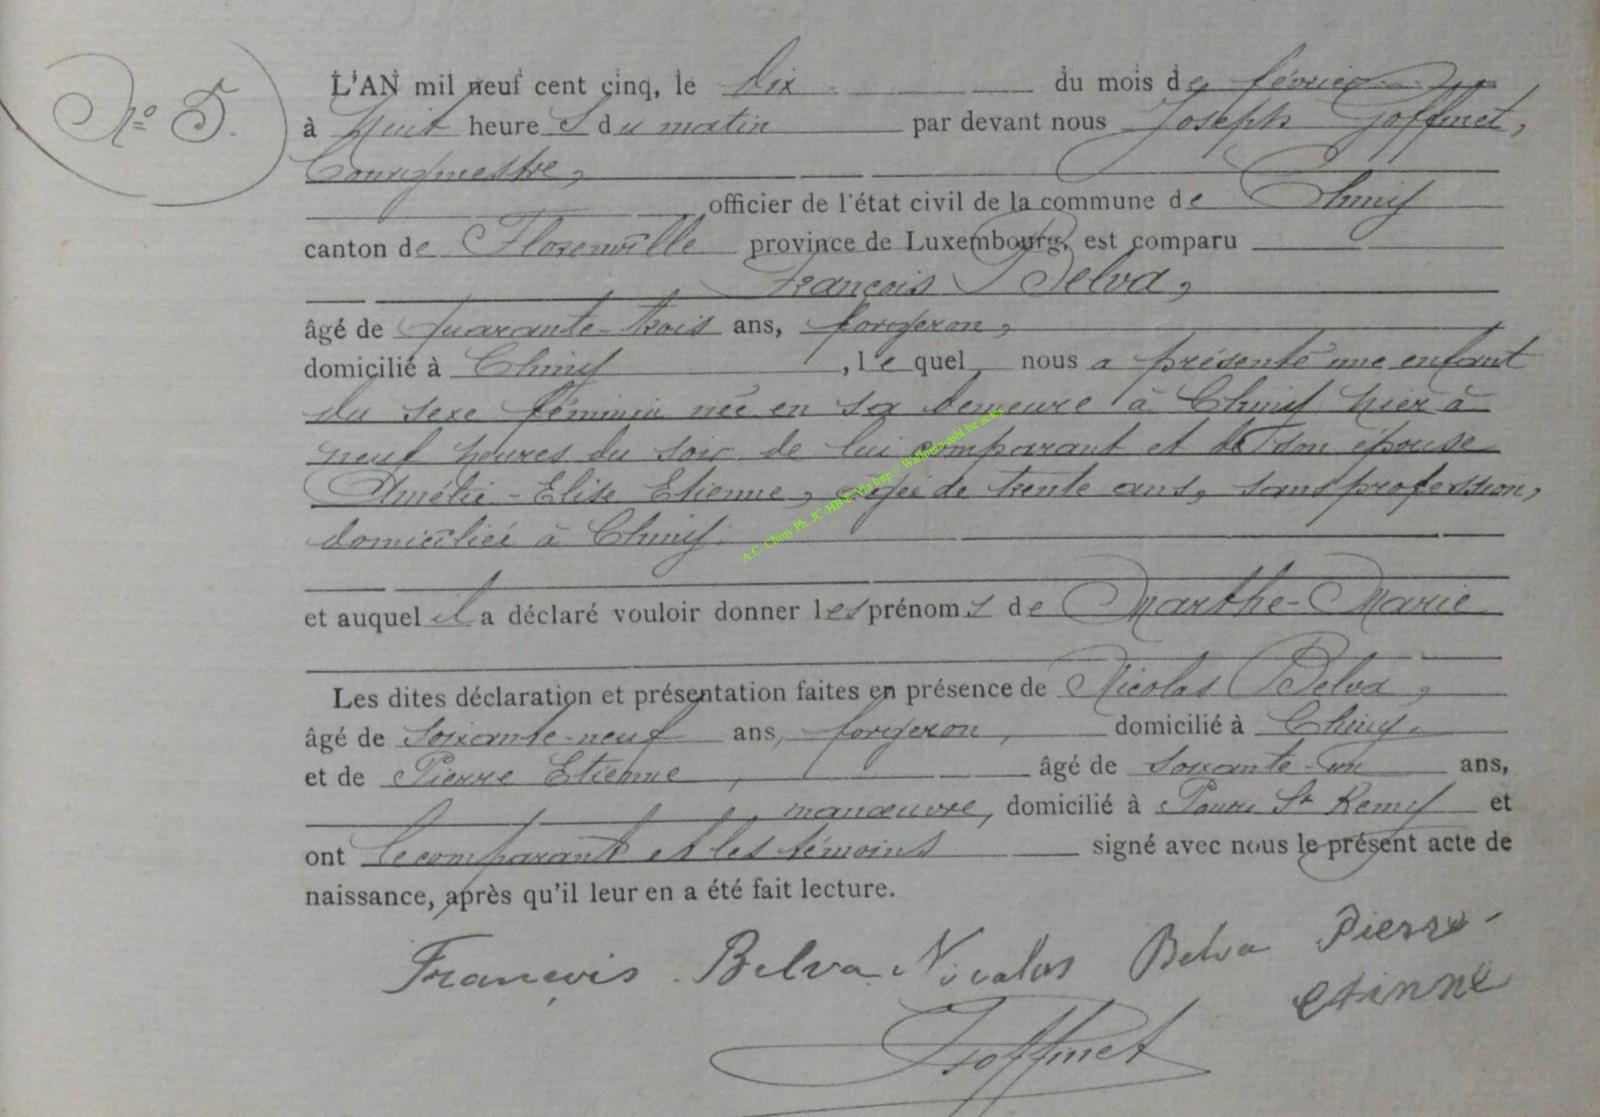 N° 5.
L'AN mil neuf cent cinq, le dix du mois de février
à huit heures du matin par devant nous Joseph Goffinet,
bourgmestre,
officier de l'état civil de la commune de Chiny
canton de Florenville province de Luxembourg, est comparu
François Belva,
âgé de quarante-trois ans, forgeron,
domicilié à Chiny, lequel nous a présenté une enfant
du sexe féminin née en sa demeure à Chiny hier à
neuf heures du soir de lui comparant et de son épouse
Amélie-Elise Etienne, âgée de trente ans, sans profession,
domiciliée à Chiny.
et auquel il a déclaré vouloir donner les prénoms de Marthe-Marie
Les dites déclaration et présentation faites en présence de Nicolas Belva,
âgé de soixante-neuf ans, forgeron, domicilié à Chiny,
et de Pierre Etienne, âgé de soixante-un ans,
manœuvre, domicilié à St Remy et
ont le comparant et les témoins signé avec nous le présent acte de
naissance, après qu'il leur en a été fait lecture.
François Belva Nicolas Belva Pierre
etinne
Goffinet
A.C. Chiny Ph. JC/HB & Via http:// Wallonia-asbl.be/actes